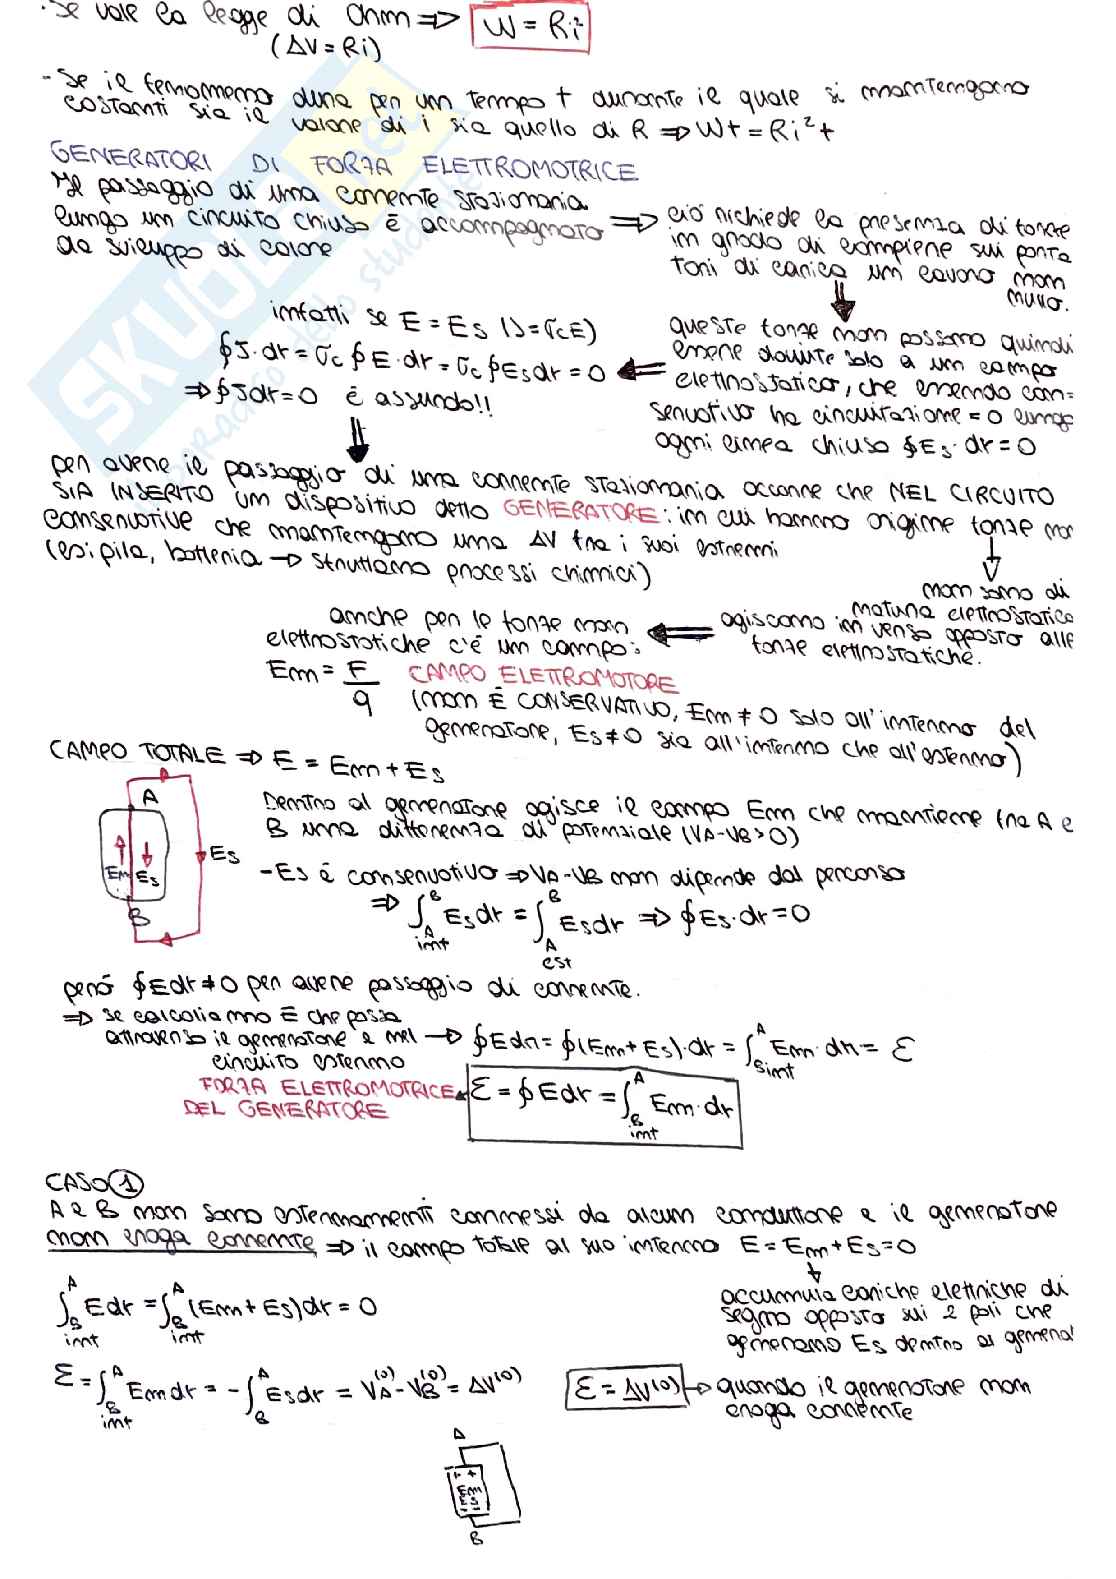 · Se vale la legge di Ohm ⇒ W = Ri²
(ΔV = Ri)
- Se il fenomeno dura per un tempo t durante il quale si mantengono
costanti sia il valore di i sia quello di R ⇒ Wt = Ri²t
GENERATORI DI FORZA ELETTROMOTRICE
Il passaggio di una corrente stazionaria
lungo un circuito chiuso è accompagnato ⇒
da sviluppo di calore
ciò richiede la presenza di forze
in grado di compiere sui porta
tori di carica un lavoro non
nullo.
queste forze non possono quindi
essere dovute solo a un campo
elettrostatico, che essendo con-
servativo ha circuitazione = 0 lungo
ogni linea chiusa ∮Es · dr = 0
infatti se E = Es (J = σcE)
∮J · dr = σc ∮E · dr = σc ∮Es dr = 0
⇒ ∮Jdr = 0 è assurdo!!
per avere il passaggio di una corrente stazionaria occorre che NEL CIRCUITO
SIA INSERITO un dispositivo detto GENERATORE: in cui hanno origine forze non
conservative che mantengono una ΔV tra i suoi estremi
(es. pila, batteria → sfruttano processi chimici)
non sono di
natura elettrostatica
agiscono in verso opposto alle
forze elettrostatiche.
anche per le forze non
elettrostatiche c'è un campo:
Em = F/q CAMPO ELETTROMOTORE
(non È CONSERVATIVO, Em ≠ 0 solo all'interno del
generatore, Es ≠ 0 sia all'interno che all'esterno)
CAMPO TOTALE ⇒ E = Em + Es
A
Em Es
Es
B
Dentro al generatore agisce il campo Em che mantiene fra A e
B una differenza di potenziale (VA - VB > 0)
- Es è conservativo ⇒ VA - VB non dipende dal percorso
⇒ ∫_A int^B Es dr = ∫_A est^B Es dr ⇒ ∮Es · dr = 0
però ∮Edr ≠ 0 per avere passaggio di corrente.
⇒ se calcoliamo E che passa
attraverso il generatore e nel → ∮Edr = ∮(Em + Es) · dr = ∫_B int^A Em · dr = Ɛ
circuito esterno
FORZA ELETTROMOTRICE
DEL GENERATORE
Ɛ = ∮Edr = ∫_B int^A Em · dr
CASO 1
A e B non sono esternamente connessi da alcun conduttore e il generatore
non eroga corrente ⇒ il campo totale al suo interno E = Em + Es = 0
accumula cariche elettriche di
segno opposto sui 2 poli che
generano Es dentro al generat
∫_B int^A Edr = ∫_B int^A (Em + Es) dr = 0
Ɛ = ∫_B int^A Em dr = - ∫_B^A Es dr = VA⁽⁰⁾ - VB⁽⁰⁾ = ΔV⁽⁰⁾
Ɛ = ΔV⁽⁰⁾ → quando il generatore non
eroga corrente
A
+ +
Em
Es
- -
B